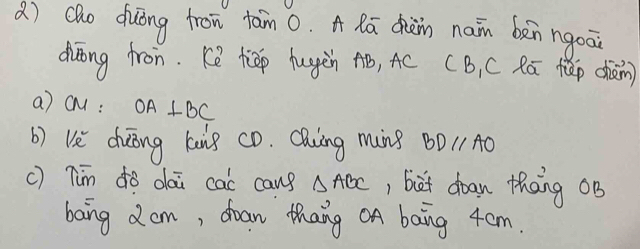 2) Cho đường tròn tâm O. A là điểm nằm bên ngoài
đường tròn. Kẻ tiếp tuyến AB, AC (B,C là tiếp điểm)
a) CM: OA ⊥ BC
b) Vẽ đường kính CD. Chứng minh BD // AO
c) Tìm độ dài các cạnh △ ABC, biết đoạn thẳng OB
bằng 2cm, đoạn thẳng OA bằng 4cm.